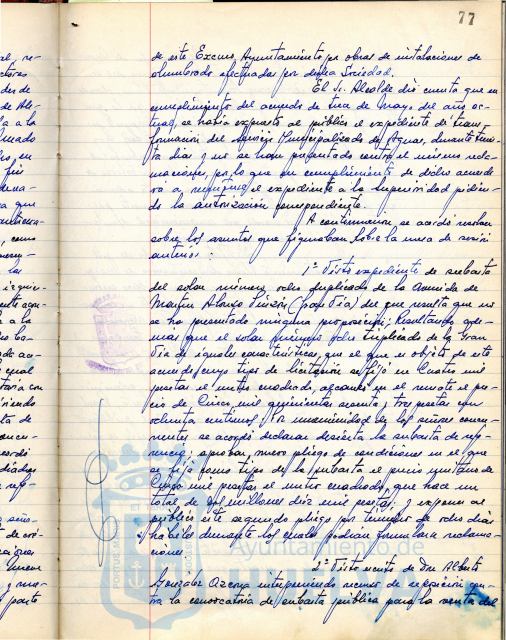 77
de este Excmo. Ayuntamiento por obras de instalaciones de
alumbrado efectuadas por dicha Sociedad.
El Sr. Alcalde dió cuenta que en
cumplimiento del acuerdo de trece de Mayo del año ac-
tual, se había expuesto al público el expediente de trans-
formación del Servicio Municipalizado de Aguas, durante trein-
ta días y no se han presentado contra el mismo recla-
maciones, por lo que en cumplimiento de dicho acuerdo
va a el expediente a la Superioridad pidien-
do la autorización correspondiente.
A continuación, se acordó
sobre los asuntos que figuraban sobre la mesa de sesión
anterior:
1º Visto expediente de subasta
del solar número ocho duplicado de la Avenida de
Martín Alonso Pinzón (Gran Vía) del que resulta que no
se ha presentado ninguna proposición; Resultando ade-
más que el solar ocho duplicado de la Gran
Vía de iguales características, que el que es objeto de este
acuerdo, cuyo tipo de licitación se fijó en Cuatro mil
pesetas el metro cuadrado, alcanzó en el remate el pre-
cio de Cinco mil quinientas sesenta y tres pesetas con
ochenta céntimos; Por unanimidad de los señores concu-
rrentes se acordó declarar desierta la subasta de refe-
rencia; aprobar nuevo pliego de condiciones en el que
se fija como tipo de la subasta el precio unitario de
Cinco mil pesetas el metro cuadrado, que hace un
total de dos millones diez mil pesetas; y exponer al
público este segundo pliego por término de ocho días
hábiles durante los cuales podrán formularse reclama-
ciones.
2º Visto escrito de Don Alberto
González interponiendo recurso de reposición con-
tra la convocatoria de subasta pública para la venta del
Ayuntamiento de